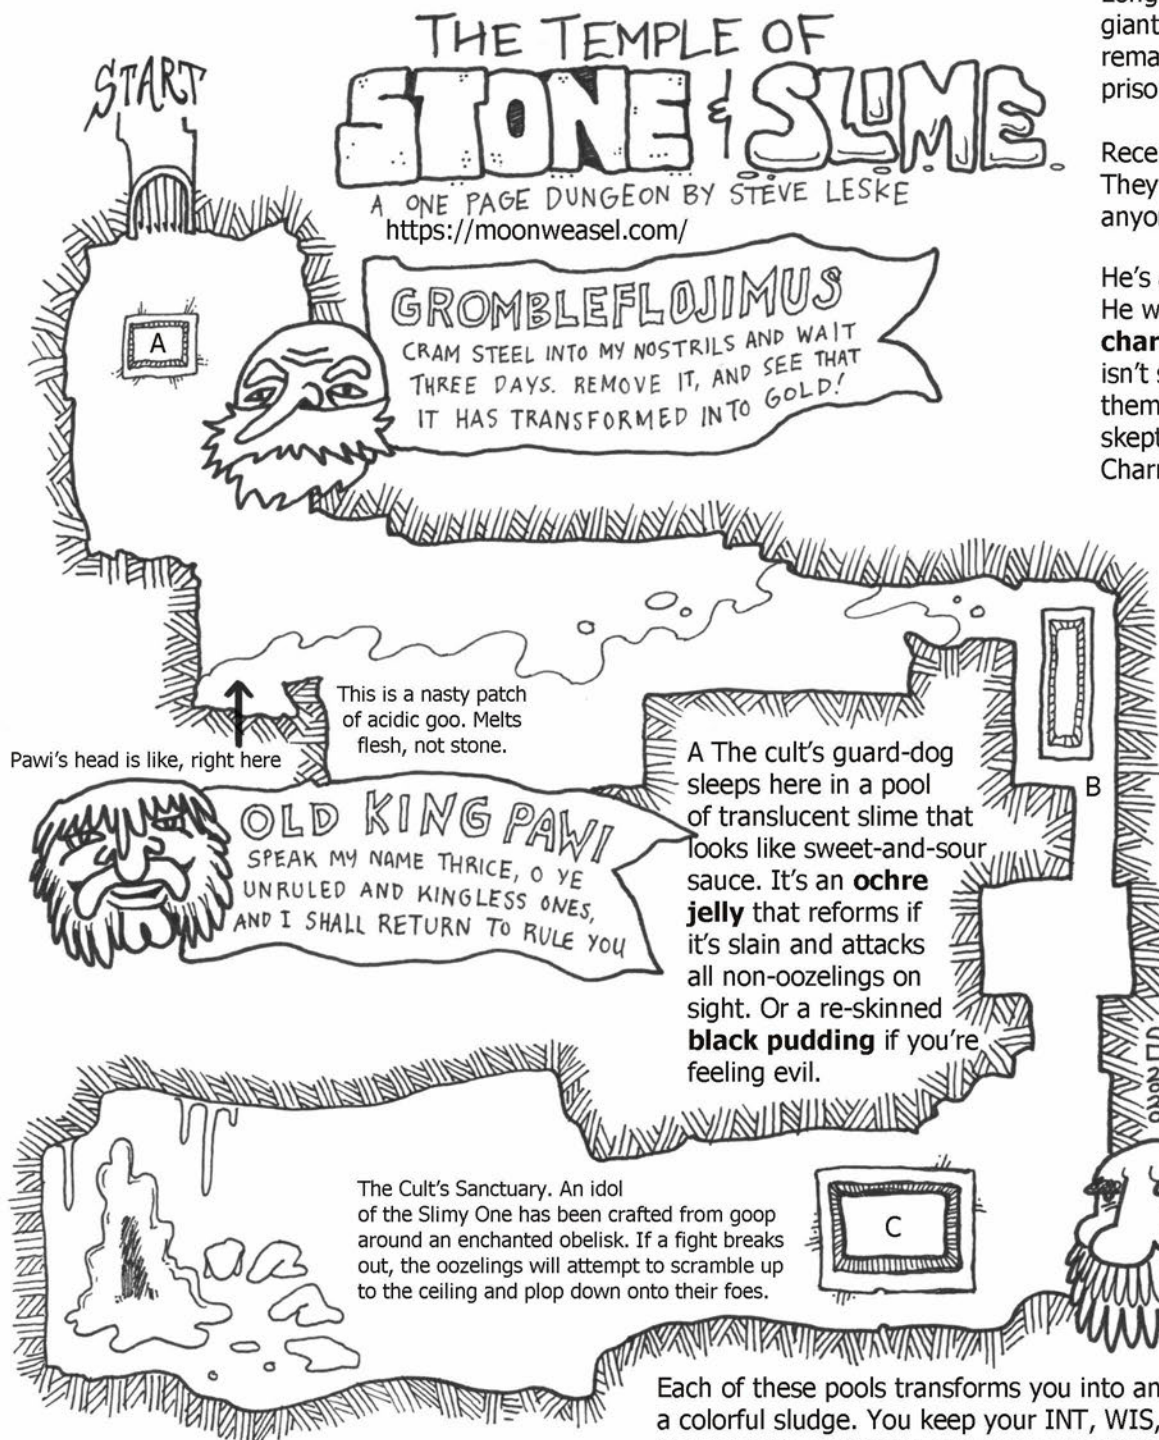 START
THE TEMPLE OF
STONE & SLIME
A ONE PAGE DUNGEON BY STEVE LESKE
https://moonweasel.com/
A
GROMBLEFLOJIMUS
CRAM STEEL INTO MY NOSTRILS AND WAIT
THREE DAYS. REMOVE IT, AND SEE THAT
IT HAS TRANSFORMED INTO GOLD!
giant
rema
priso
Rece
They
anyo
He's
He w
char
isn't s
them
skept
Charr
This is a nasty patch
of acidic goo. Melts
flesh, not stone.
Pawi's head is like, right here
OLD KING PAWI
SPEAK MY NAME THRICE, O YE
UNRULED AND KINGLESS ONES,
AND I SHALL RETURN TO RULE YOU
A The cult's guard-dog
sleeps here in a pool
of translucent slime that
looks like sweet-and-sour
sauce. It's an ochre
jelly that reforms if
it's slain and attacks
all non-oozelings on
sight. Or a re-skinned
black pudding if you're
feeling evil.
B
The Cult's Sanctuary. An idol
of the Slimy One has been crafted from goop
around an enchanted obelisk. If a fight breaks
out, the oozelings will attempt to scramble up
to the ceiling and plop down onto their foes.
C
Each of these pools transforms you into an
a colorful sludge. You keep your INT, WIS,